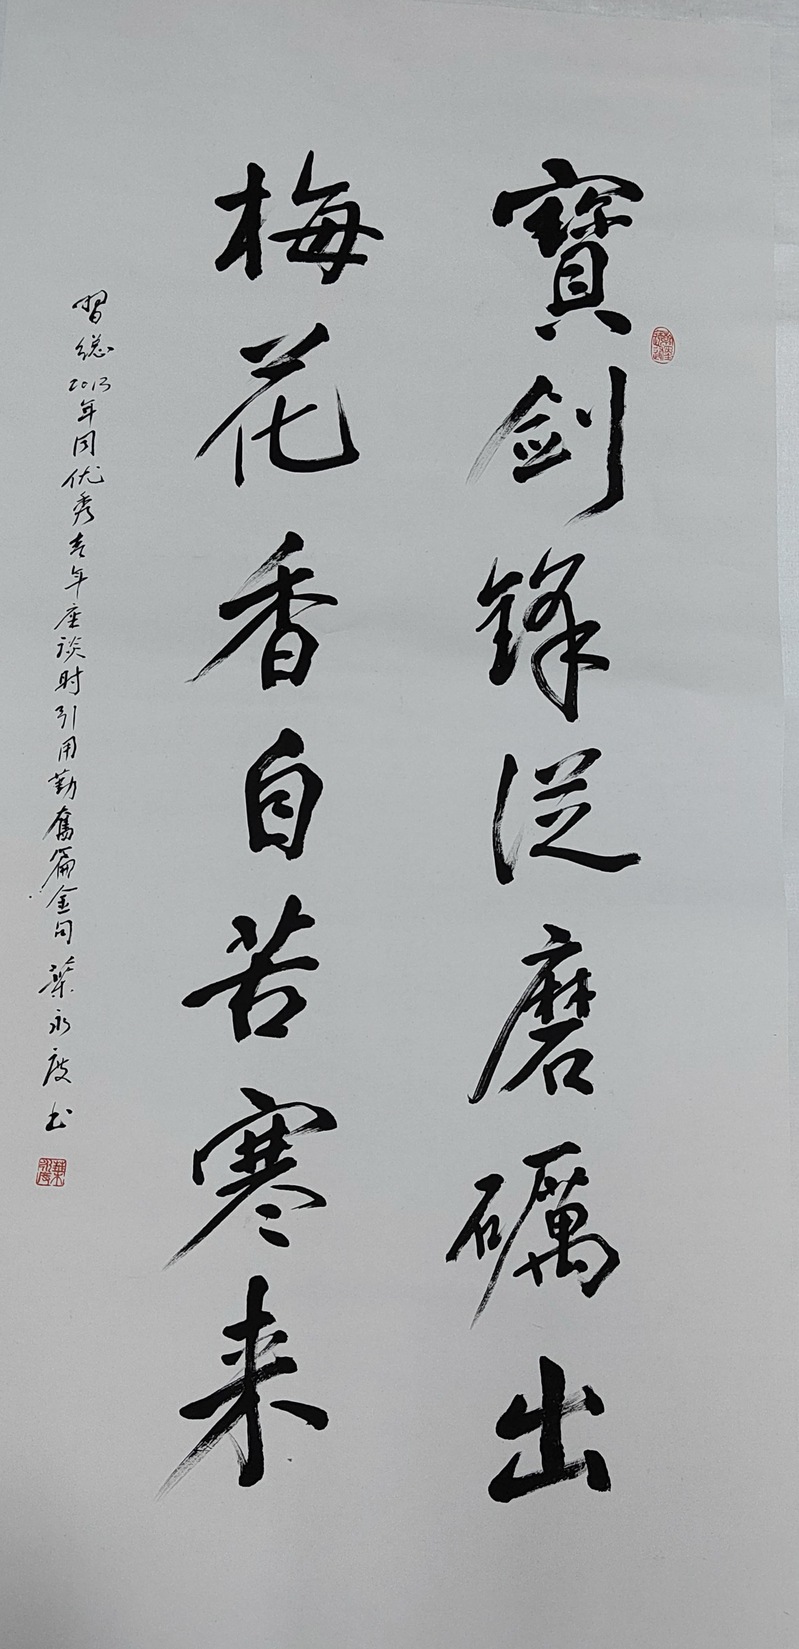 寶剑鋒從磨礪出
梅花香自苦寒来
習總2013年同优秀青年座谈时引用勤奮篇金句 葉永度书